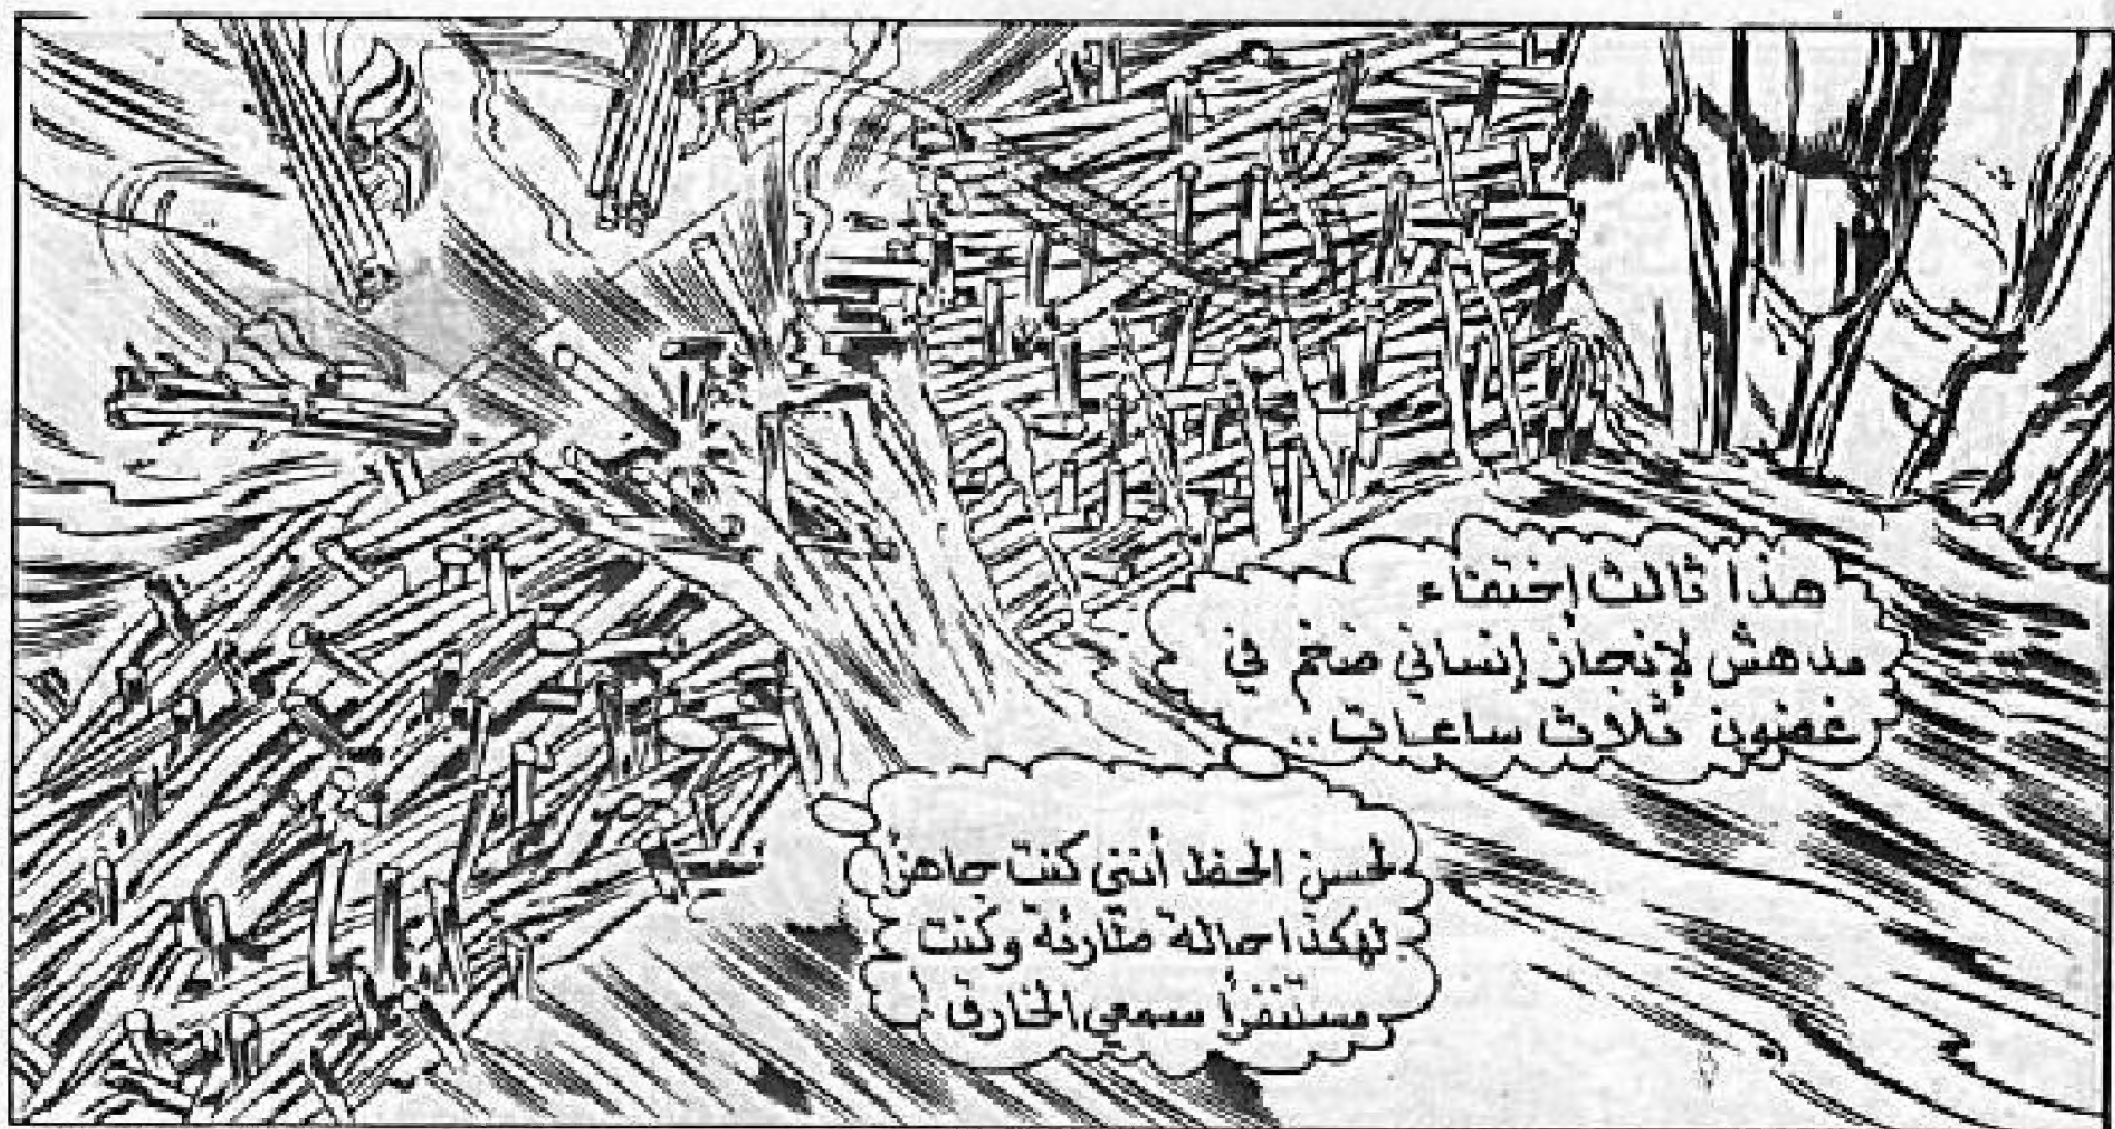 هذا ثالث إختفاء
مدهش لإنجاز إنساني ضخم في
غضون ثلاث ساعات..
لحسن الحظ أنني كنت جاهزاً
لهكذا حالة طارئة وكنت
مستنفراً سمعي الخارق!